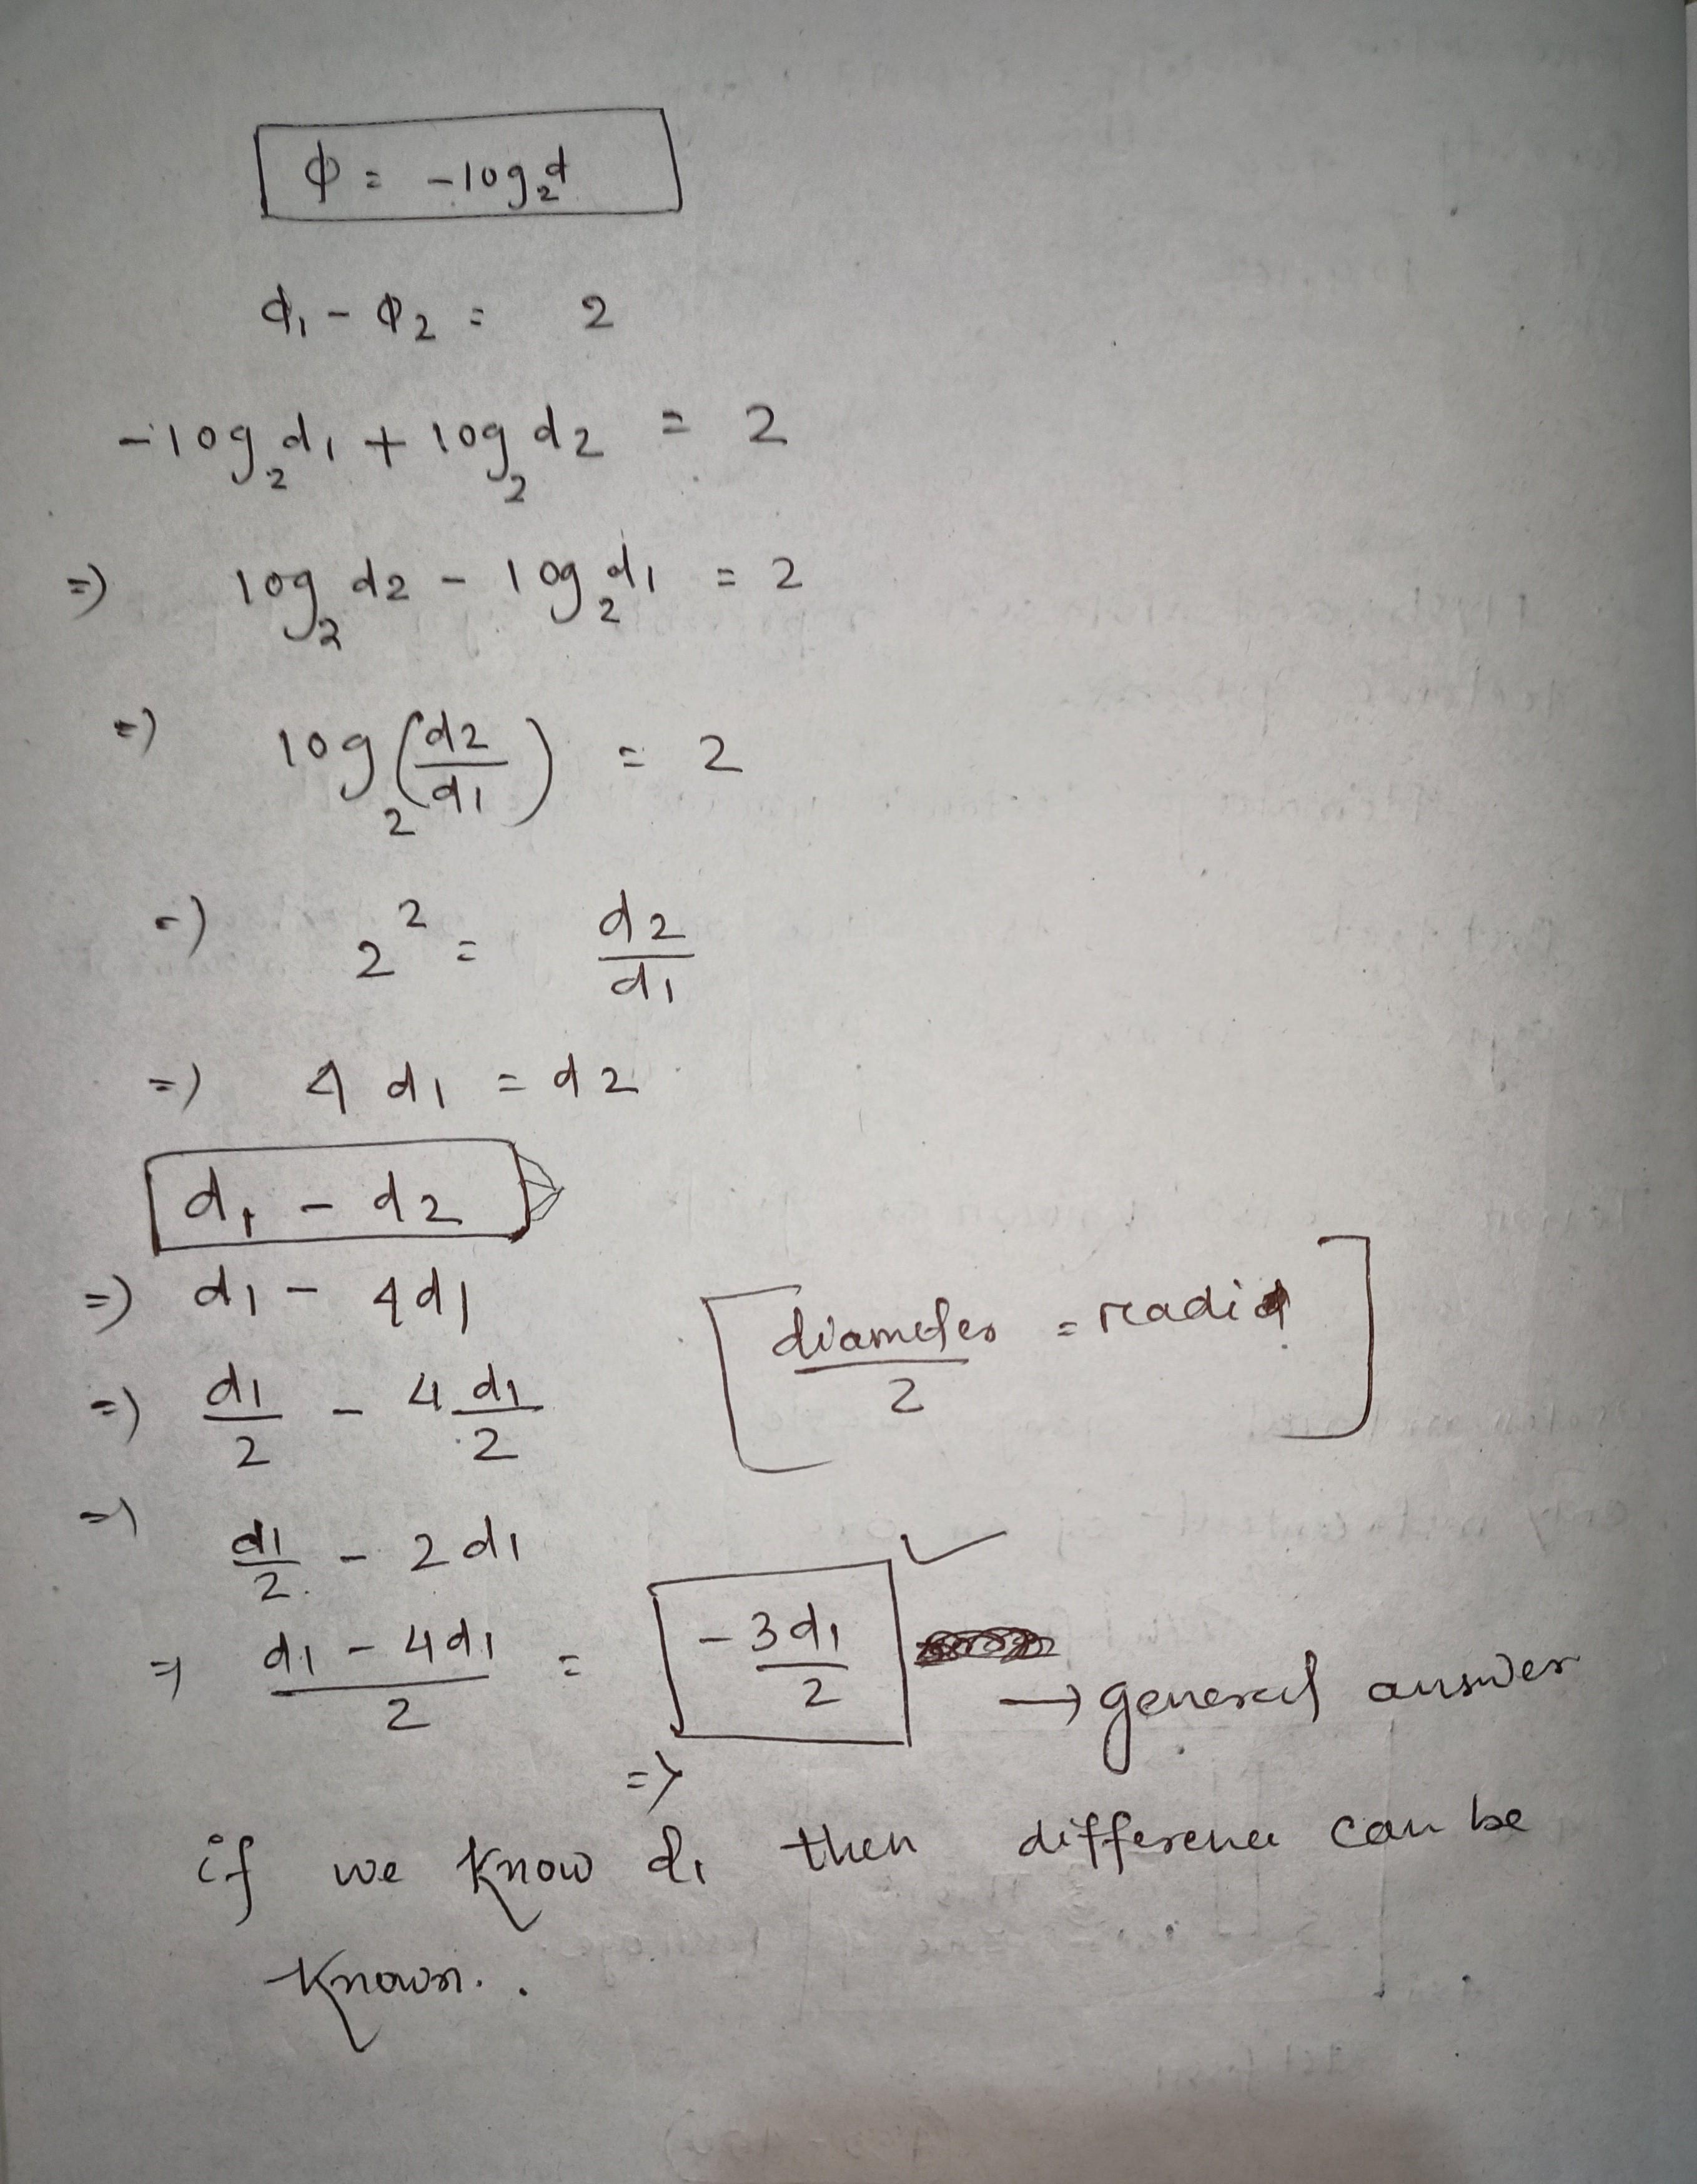 ϕ = -log₂d
ϕ₁ - ϕ₂ = 2
-log₂d₁ + log₂d₂ = 2
=) log₂d₂ - log₂d₁ = 2
=) log₂(d₂/d₁) = 2
=) 2² = d₂/d₁
=) 4d₁ = d₂
d₁ - d₂
=) d₁ - 4d₁
[diameter/2 = radi]
=) d₁/2 - 4d₁/2
=) d₁/2 - 2d₁
=) (d₁ - 4d₁)/2 = -3d₁/2 ✓ → general answer
=>
if we know d₁ then difference can be
known..